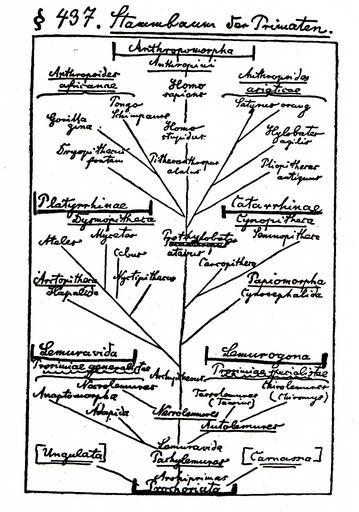 § 437. Stammbaum der Primaten.
Anthropomorpha
Anthropini
Anthropoides
africanae
Anthropoides
asiaticae
Homo
sapiens
Pongo
Schimpanse
Satyrus orang
Gorilla
gina
Homo
stupidus
Hylobates
agilis
Dryopithecus
fontani
Pithecanthropus
alalus
Pliopithecus
antiquus
Platyrrhinae
Catarrhinae
Dysmopitheca
Cynopitheca
Ateles
Mycetes
Prothylobates
atavus
Semnopitheca
Cebus
Cercopitheca
Arctopitheca
Hapalida
Nyctipithecus
Papiomorpha
Cynocephalida
Lemuravida
Lemurogona
Prosimiae generalistae
Archipithecus
Prosimiae specialistae
Necrolemures
Chirolemures
(Chiromys)
Anaptomorpha
Tarsolemures
(Tarsius)
Adapida
Necrolemures
Autolemures
Lemuravida
Pachylemures
[Ungulata]
[Carnassia]
Archiprimas
Prochoriata